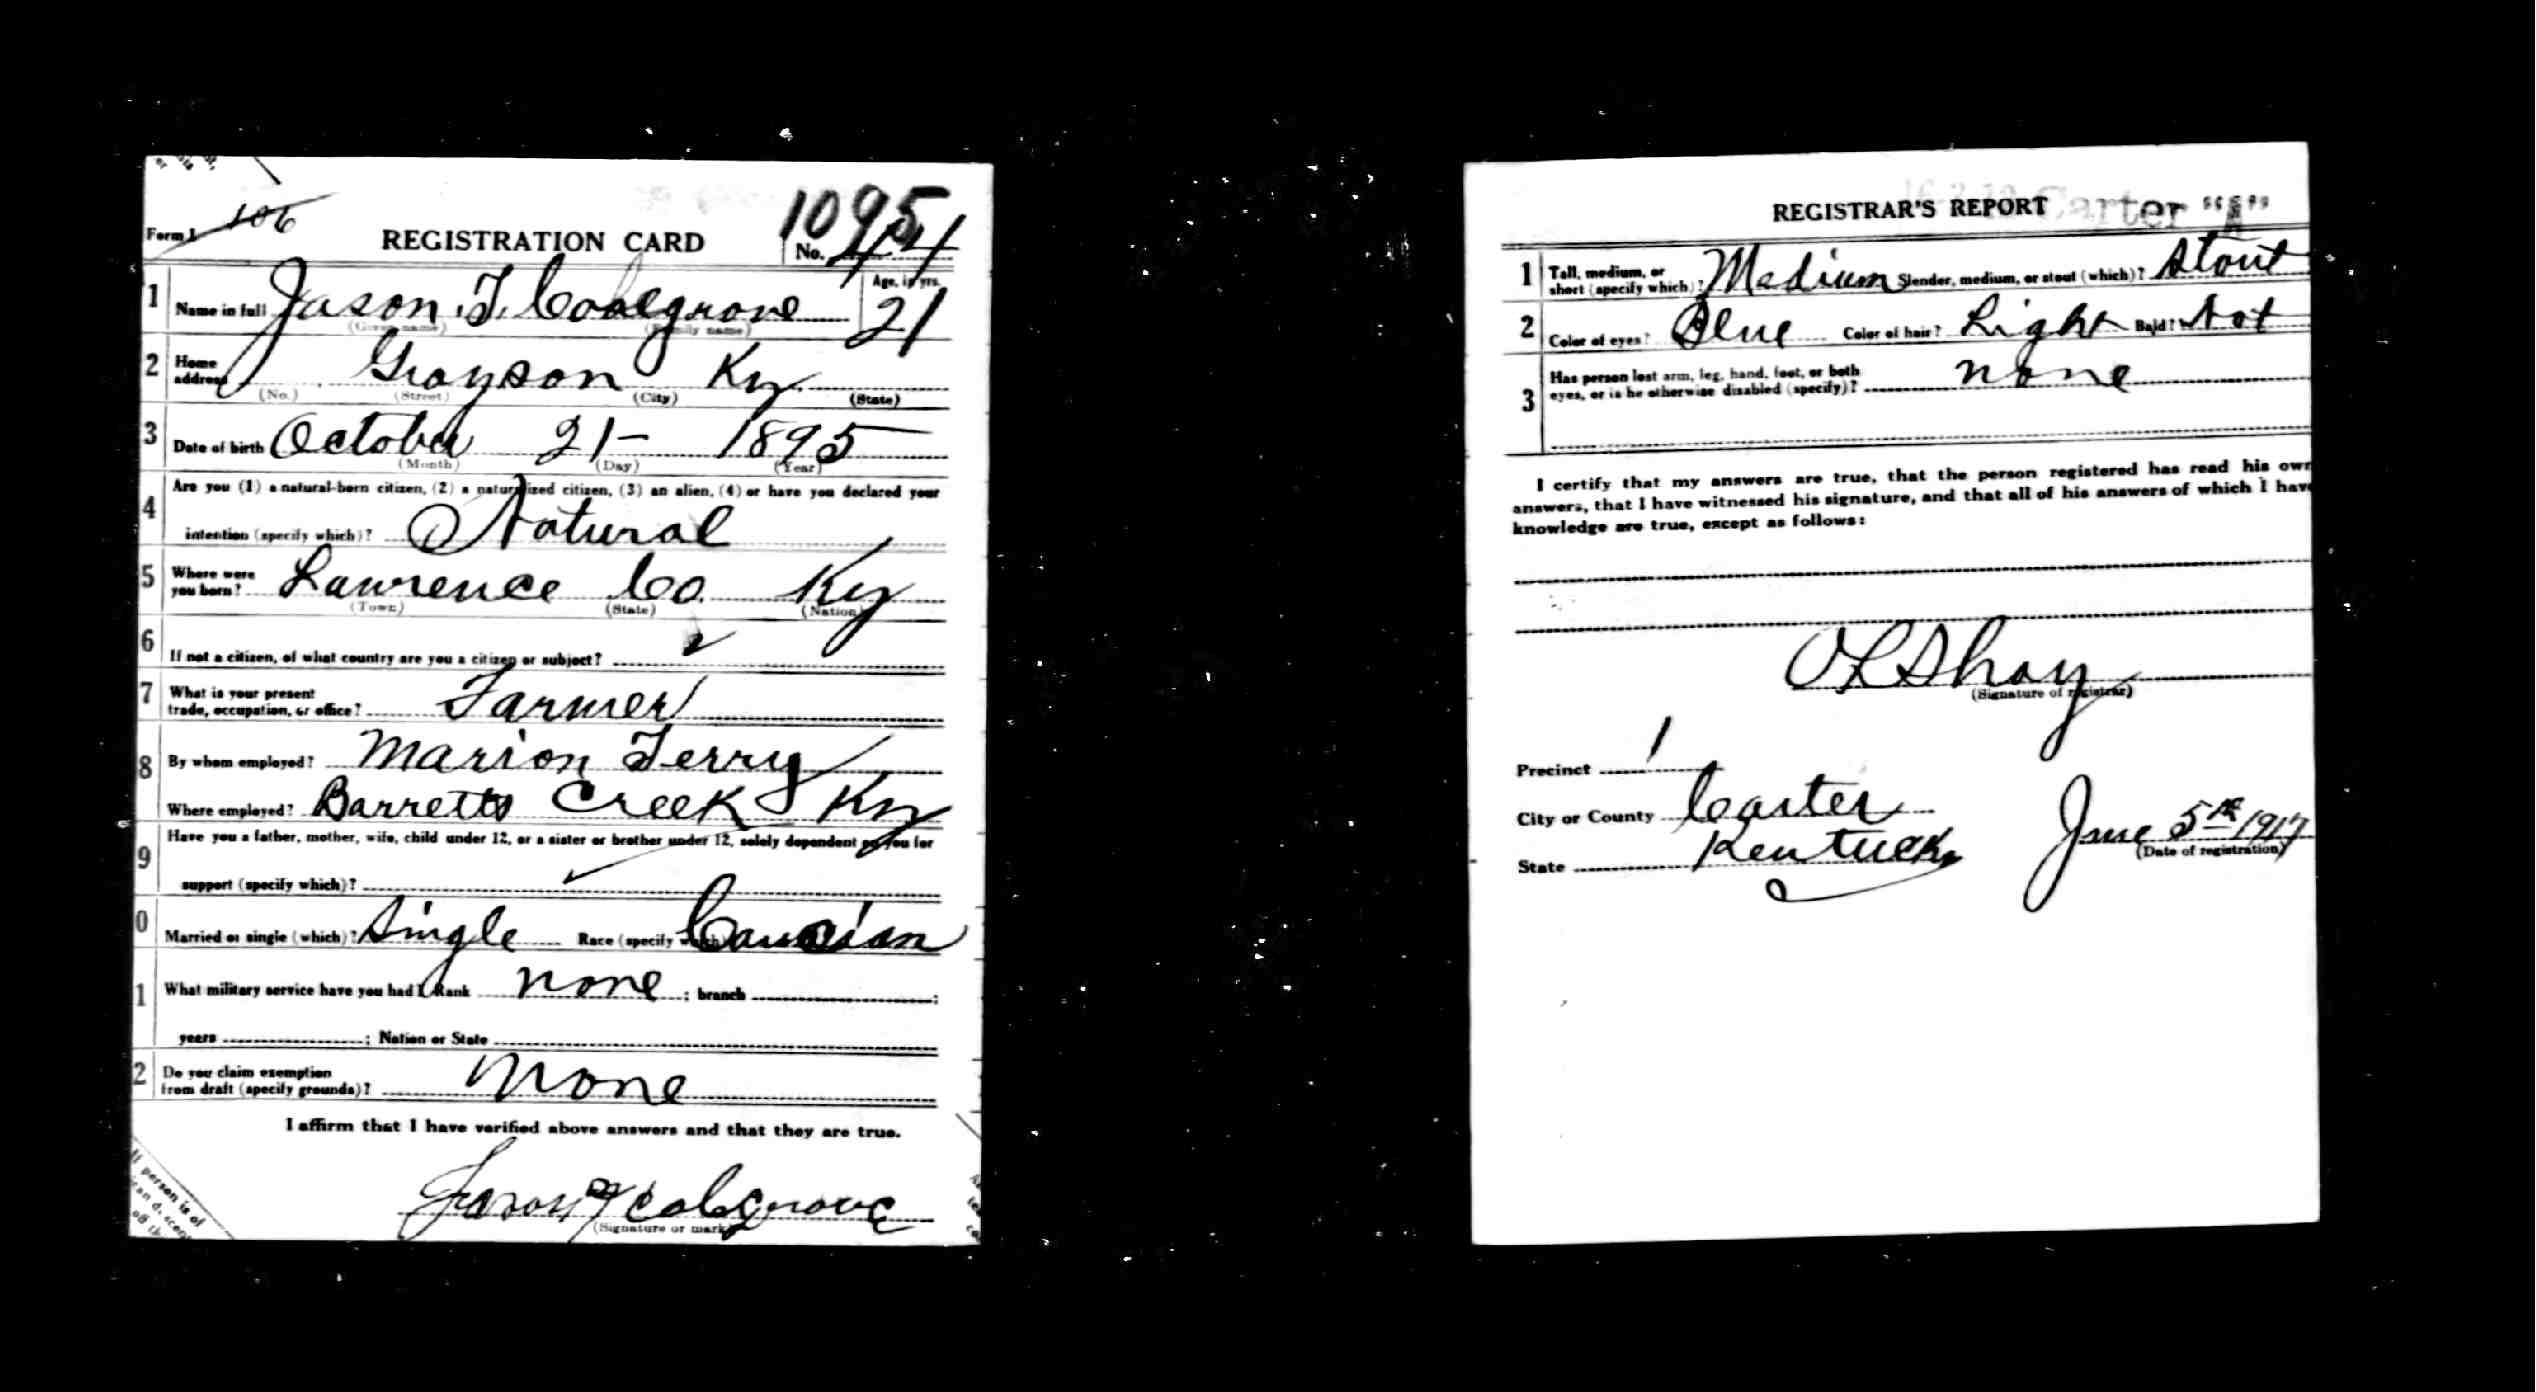 1095
Form 1 106 REGISTRATION CARD No. 44
1 Name in full Jason. F. Coalgrove Age, in yrs. 21
(Given name) (Family name)
2 Home address Grayson Ky
(No.) (Street) (City) (State)
3 Date of birth October 21- 1895
(Month) (Day) (Year)
4 Are you (1) a natural-born citizen, (2) a naturalized citizen, (3) an alien, (4) or have you declared your
intention (specify which)? Natural
5 Where were you born? Lawrence Co. Ky
(Town) (State) (Nation)
6 If not a citizen, of what country are you a citizen or subject?
7 What is your present
trade, occupation, or office? Farmer
8 By whom employed? Marion Terry
Where employed? Barretts Creek Ky
9 Have you a father, mother, wife, child under 12, or a sister or brother under 12, solely dependent on you for
support (specify which)?
0 Married or single (which)? Single Race (specify which)
1 What military service have you had? Rank none ; branch ;
years ; Nation or State
2 Do you claim exemption
from draft (specify grounds)? None
I affirm that I have verified above answers and that they are true.
Jason F Colegrove
(Signature or mark)
If person is of
REGISTRAR'S REPORT Carter "A"
1 Tall, medium, or
short (specify which)? Medium Slender, medium, or stout (which)? Stout
2 Color of eyes? Blue Color of hair? Light Bald? Not
3 Has person lost arm, leg, hand, foot, or both
eyes, or is he otherwise disabled (specify)? none
I certify that my answers are true, that the person registered has read his own
answers, that I have witnessed his signature, and that all of his answers of which I have
knowledge are true, except as follows:
O L Shay
(Signature of registrar)
Precinct 1
City or County Carter
State Kentucky June 5th 1917
(Date of registration)